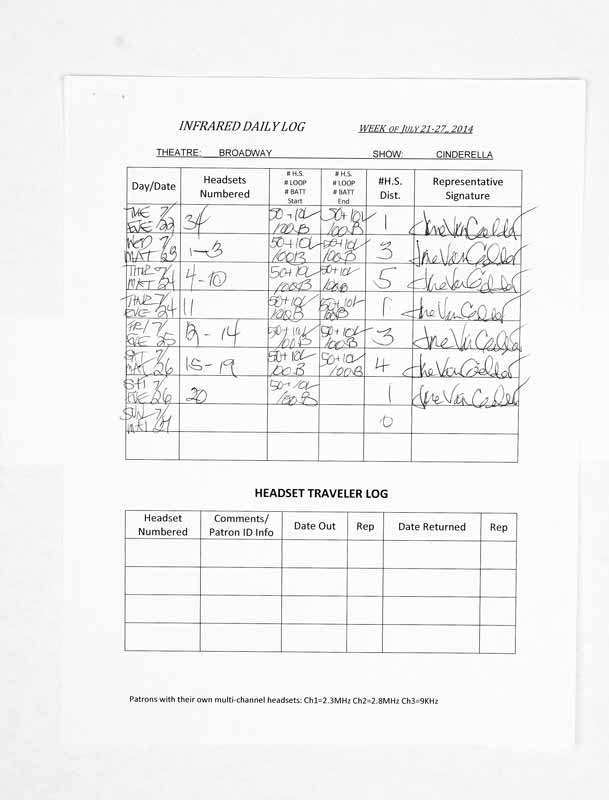 INFRARED DAILY LOG WEEK OF JULY 21-27, 2014
THEATRE: BROADWAY SHOW: CINDERELLA
Day/Date Headsets Numbered # H.S. # LOOP # BATT Start # H.S. # LOOP # BATT End #H.S. Dist. Representative Signature
TUE 7/ EVE 22 34 50+10L 100B 50+10L 100B 1
WED 7/ MAT 23 1-3 50+10L 100B 50+10L 100B 3
THUR 7/ MAT 24 4-10 50+10L 100B 50+10L 100B 5
THUR 7/ EVE 24 11 50+10L 100B 50+10L 100B 1
FRI 7/ EVE 25 12-14 50+10L 100B 50+10L 100B 3
SAT 7/ MAT 26 15-19 50+10L 100B 50+10L 100B 4
SAT 7/ EVE 26 20 50+10L 100B 1
SUN 7/ MAT 27 0
HEADSET TRAVELER LOG
Headset Numbered Comments/ Patron ID Info Date Out Rep Date Returned Rep
Patrons with their own multi-channel headsets: Ch1=2.3MHz Ch2=2.8MHz Ch3=9KHz